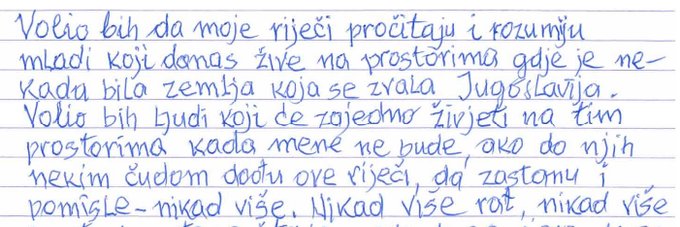 Volio bih da moje riječi pročitaju i rozumiju
mladi koji danas žive na prostorima gdje je ne-
kada bila zemlja koja se zvala Jugoslavija.
Volio bih ljudi koji će zajedno živjeti na tim
prostorima kada mene ne bude, ako do njih
nekim čudom dođu ove riječi, da zastanu i
pomisle - nikad više. Nikad više rat, nikad više